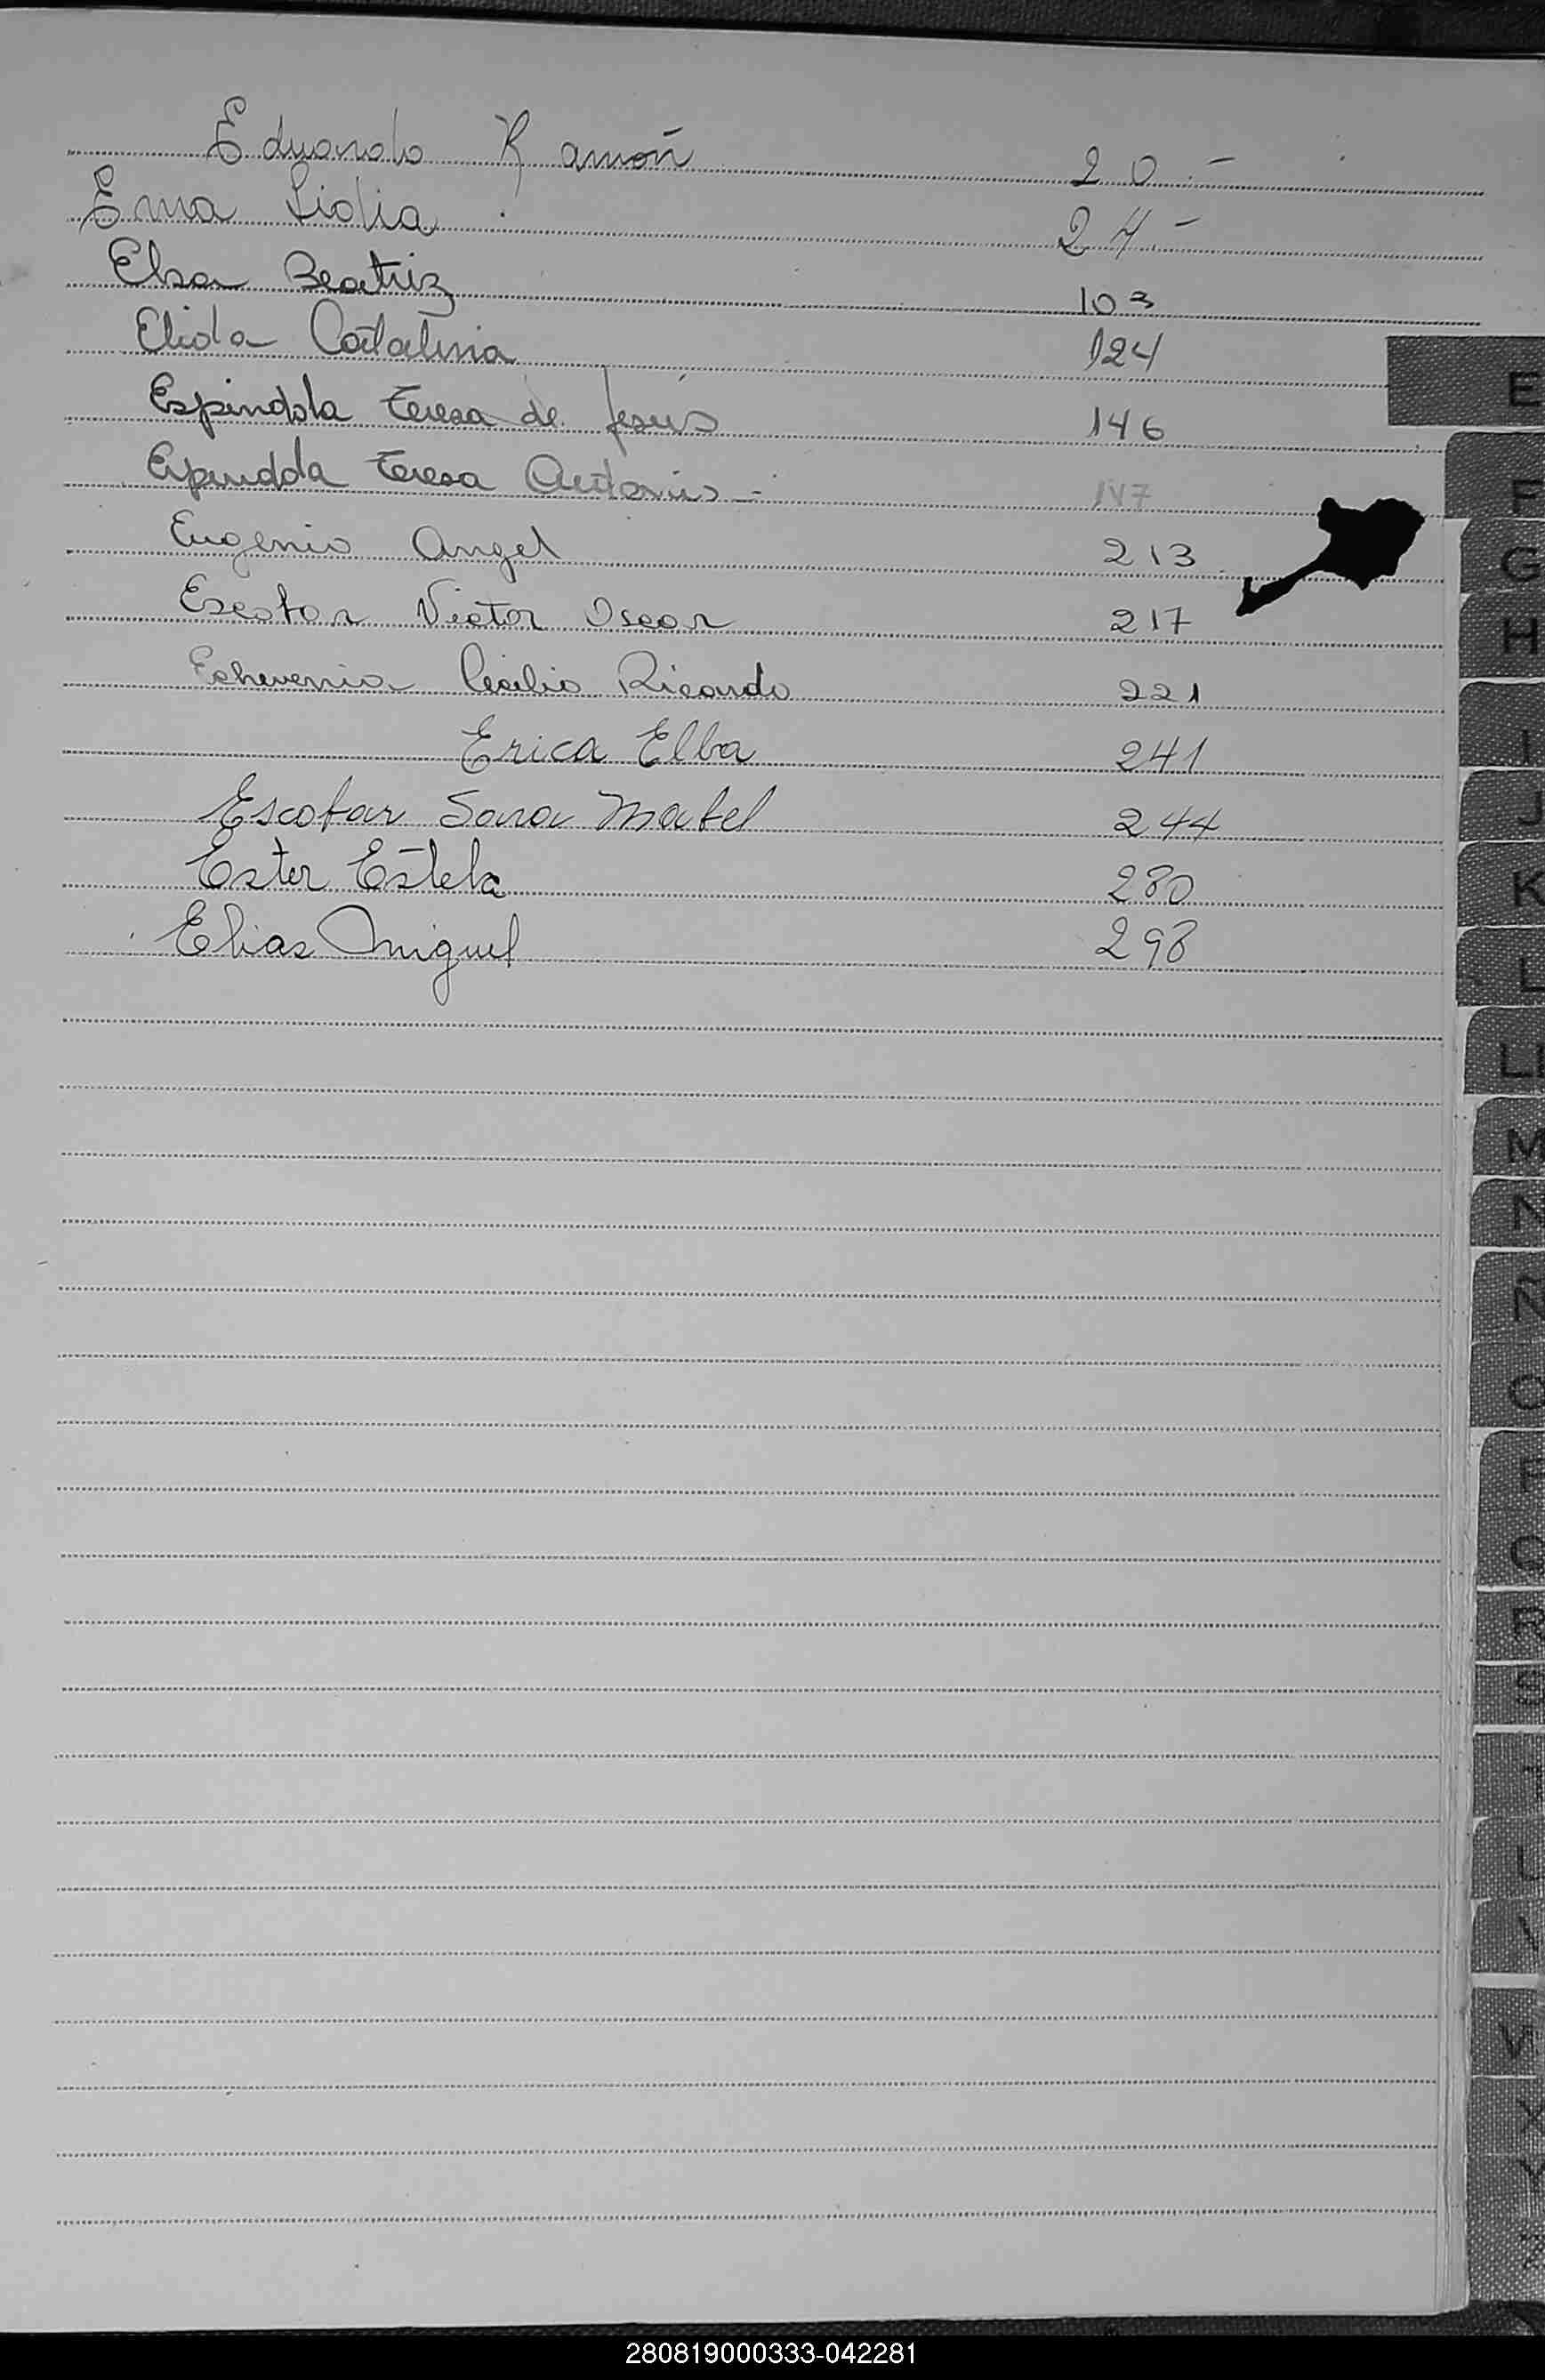 Eduardo Ramón 20.-
Ema Lidia 24.-
Elsa Beatriz 103
Elida Catalina 124
Espindola Teresa de Jesús 146
Espindola Teresa Antonia - 147
Eugenio Angel 213
Escobar Victor Oscar 217
Echeverria Cecilio Ricardo 221
Erica Elba 241
Escobar Sara Mabel 244
Ester Estela 280
Elias Miguel 298
E
F
G
H
I
J
K
L
LL
M
N
Ñ
O
P
Q
R
S
T
U
V
W
X
Y
Z
280819000333-042281